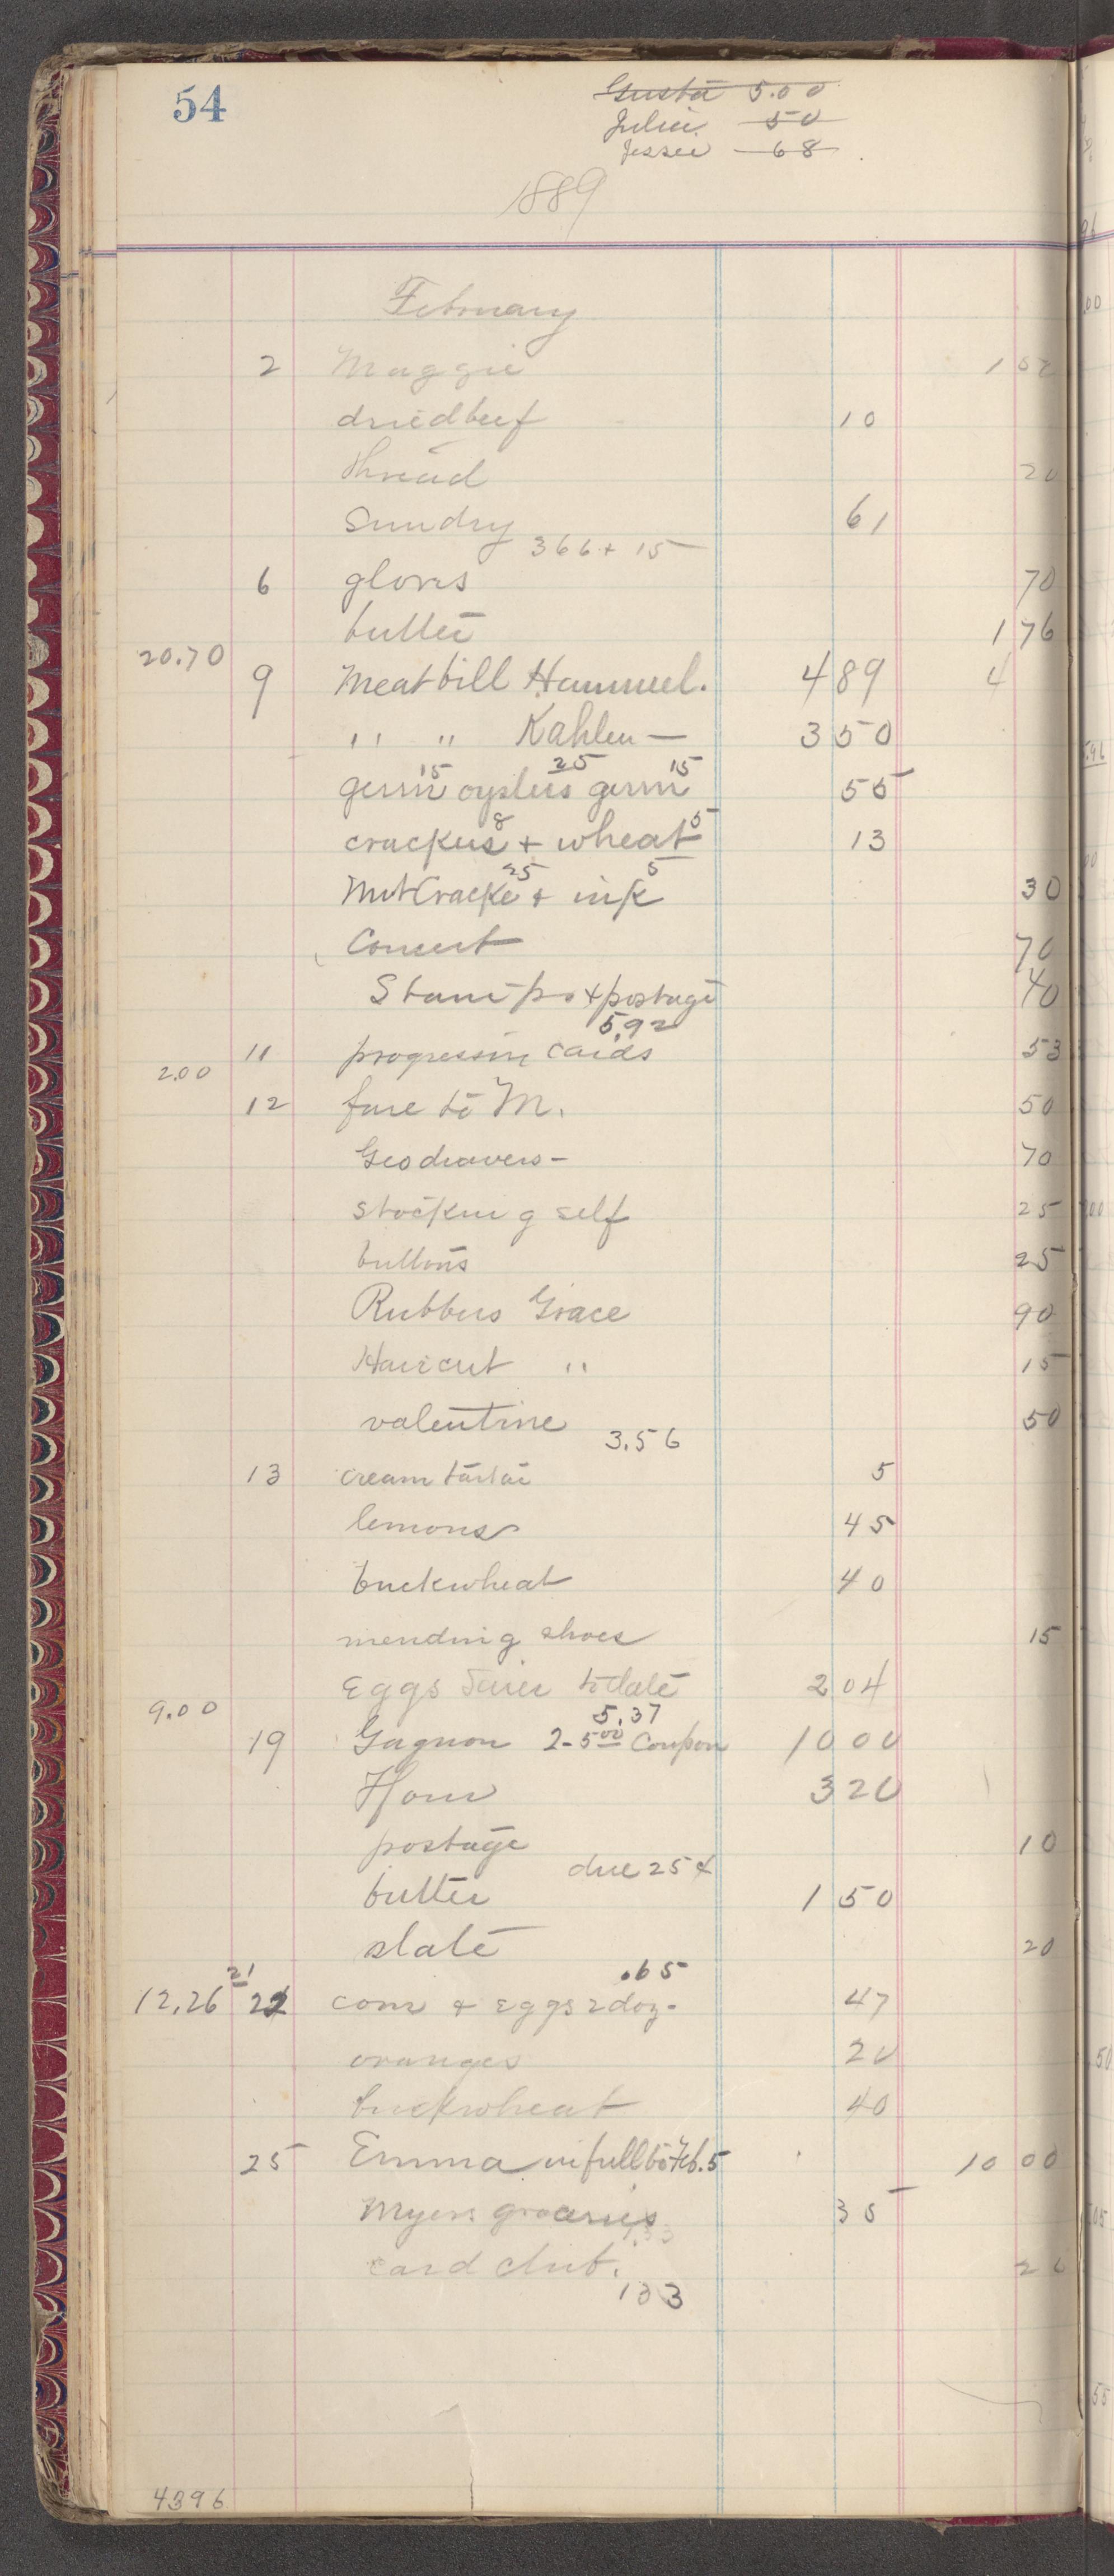 54
Gusta 5.00
Julia 50
Jessie 68
1889
February
2 Maggie 1 02
dried beef 10
thread 20
Sundry 61
366 + 15
6 gloves 70
butter 1 76
20.70
9 Meat bill Hammel. 4 89 4
" " Kahlen — 3 50
15 25 15
germ oysters germ 55
8 5
crackers + wheat 13
25 5
Nut Cracker + ink 30
Concert 70
Stamps + postage 40
5.92
11 progressive cards 53
2.00
12 fare to M. 50
Geo drawers - 70
stocking self 25
buttons 25
Rubbers Grace 90
Haircut " 15
valentine 50
3.56
13 cream tartar 5
lemons 45
buckwheat 40
mending shoes 15
Eggs to date 2 04
9.00 5.37
19 Gagnon 2-5.00 Coupon 10 00
Flour 3 20
postage 10
due 25 ¢
butter 1 50
slate 20
21 .65
12.26 22 corn & Eggs 2 doz. 47
oranges 20
buckwheat 40
25 Emma in full to Feb. 5 10 00
Myers groceries 35
card club. 20
133
4396